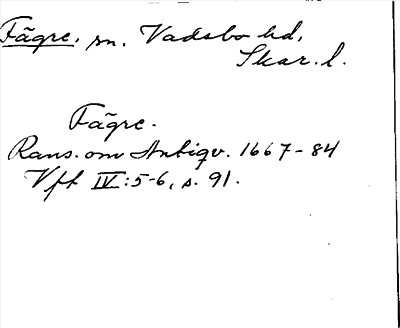 Fägre. sn. Vadsbo hd,
Skar. l.
Fägre.
Rans. om Antiqv. 1667-84
Vft IV:5-6, s. 91.